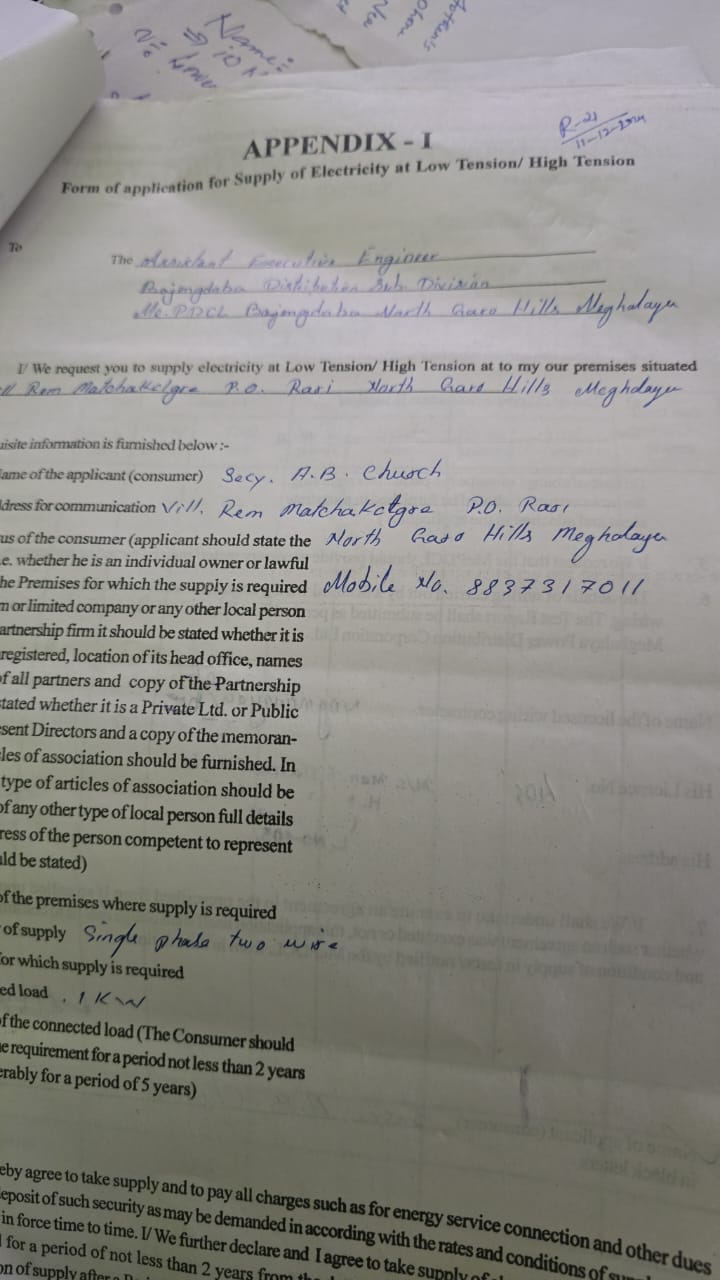 Name:
R-21
11-12-2024
APPENDIX - I
Form of application for Supply of Electricity at Low Tension/ High Tension
To
The Assistant Executive Engineer
Bajengdoba Distribution Sub Division
Me.PDCL Bajengdoba North Garo Hills Meghalaya
I/ We request you to supply electricity at Low Tension/ High Tension at to my our premises situated
Rem Matchakolgre P.O. Rari North Garo Hills Meghalaya
uisite information is furnished below :-
ame of the applicant (consumer) Secy. A.B. Church
dress for communication Vill. Rem Matchakolgre P.O. Rari
us of the consumer (applicant should state the North Garo Hills Meghalaya
e. whether he is an individual owner or lawful
he Premises for which the supply is required Mobile No. 8837317011
m or limited company or any other local person
artnership firm it should be stated whether it is
registered, location of its head office, names
f all partners and copy of the Partnership
tated whether it is a Private Ltd. or Public
esent Directors and a copy of the memoran-
les of association should be furnished. In
type of articles of association should be
of any other type of local person full details
ress of the person competent to represent
uld be stated)
of the premises where supply is required
of supply Single phase two wire
or which supply is required
ed load . 1 KW
of the connected load (The Consumer should
e requirement for a period not less than 2 years
erably for a period of 5 years)
eby agree to take supply and to pay all charges such as for energy service connection and other dues
eposit of such security as may be demanded in according with the rates and conditions of
in force time to time. I/ We further declare and I agree to take supply of
for a period of not less than 2 years from
on of supply after